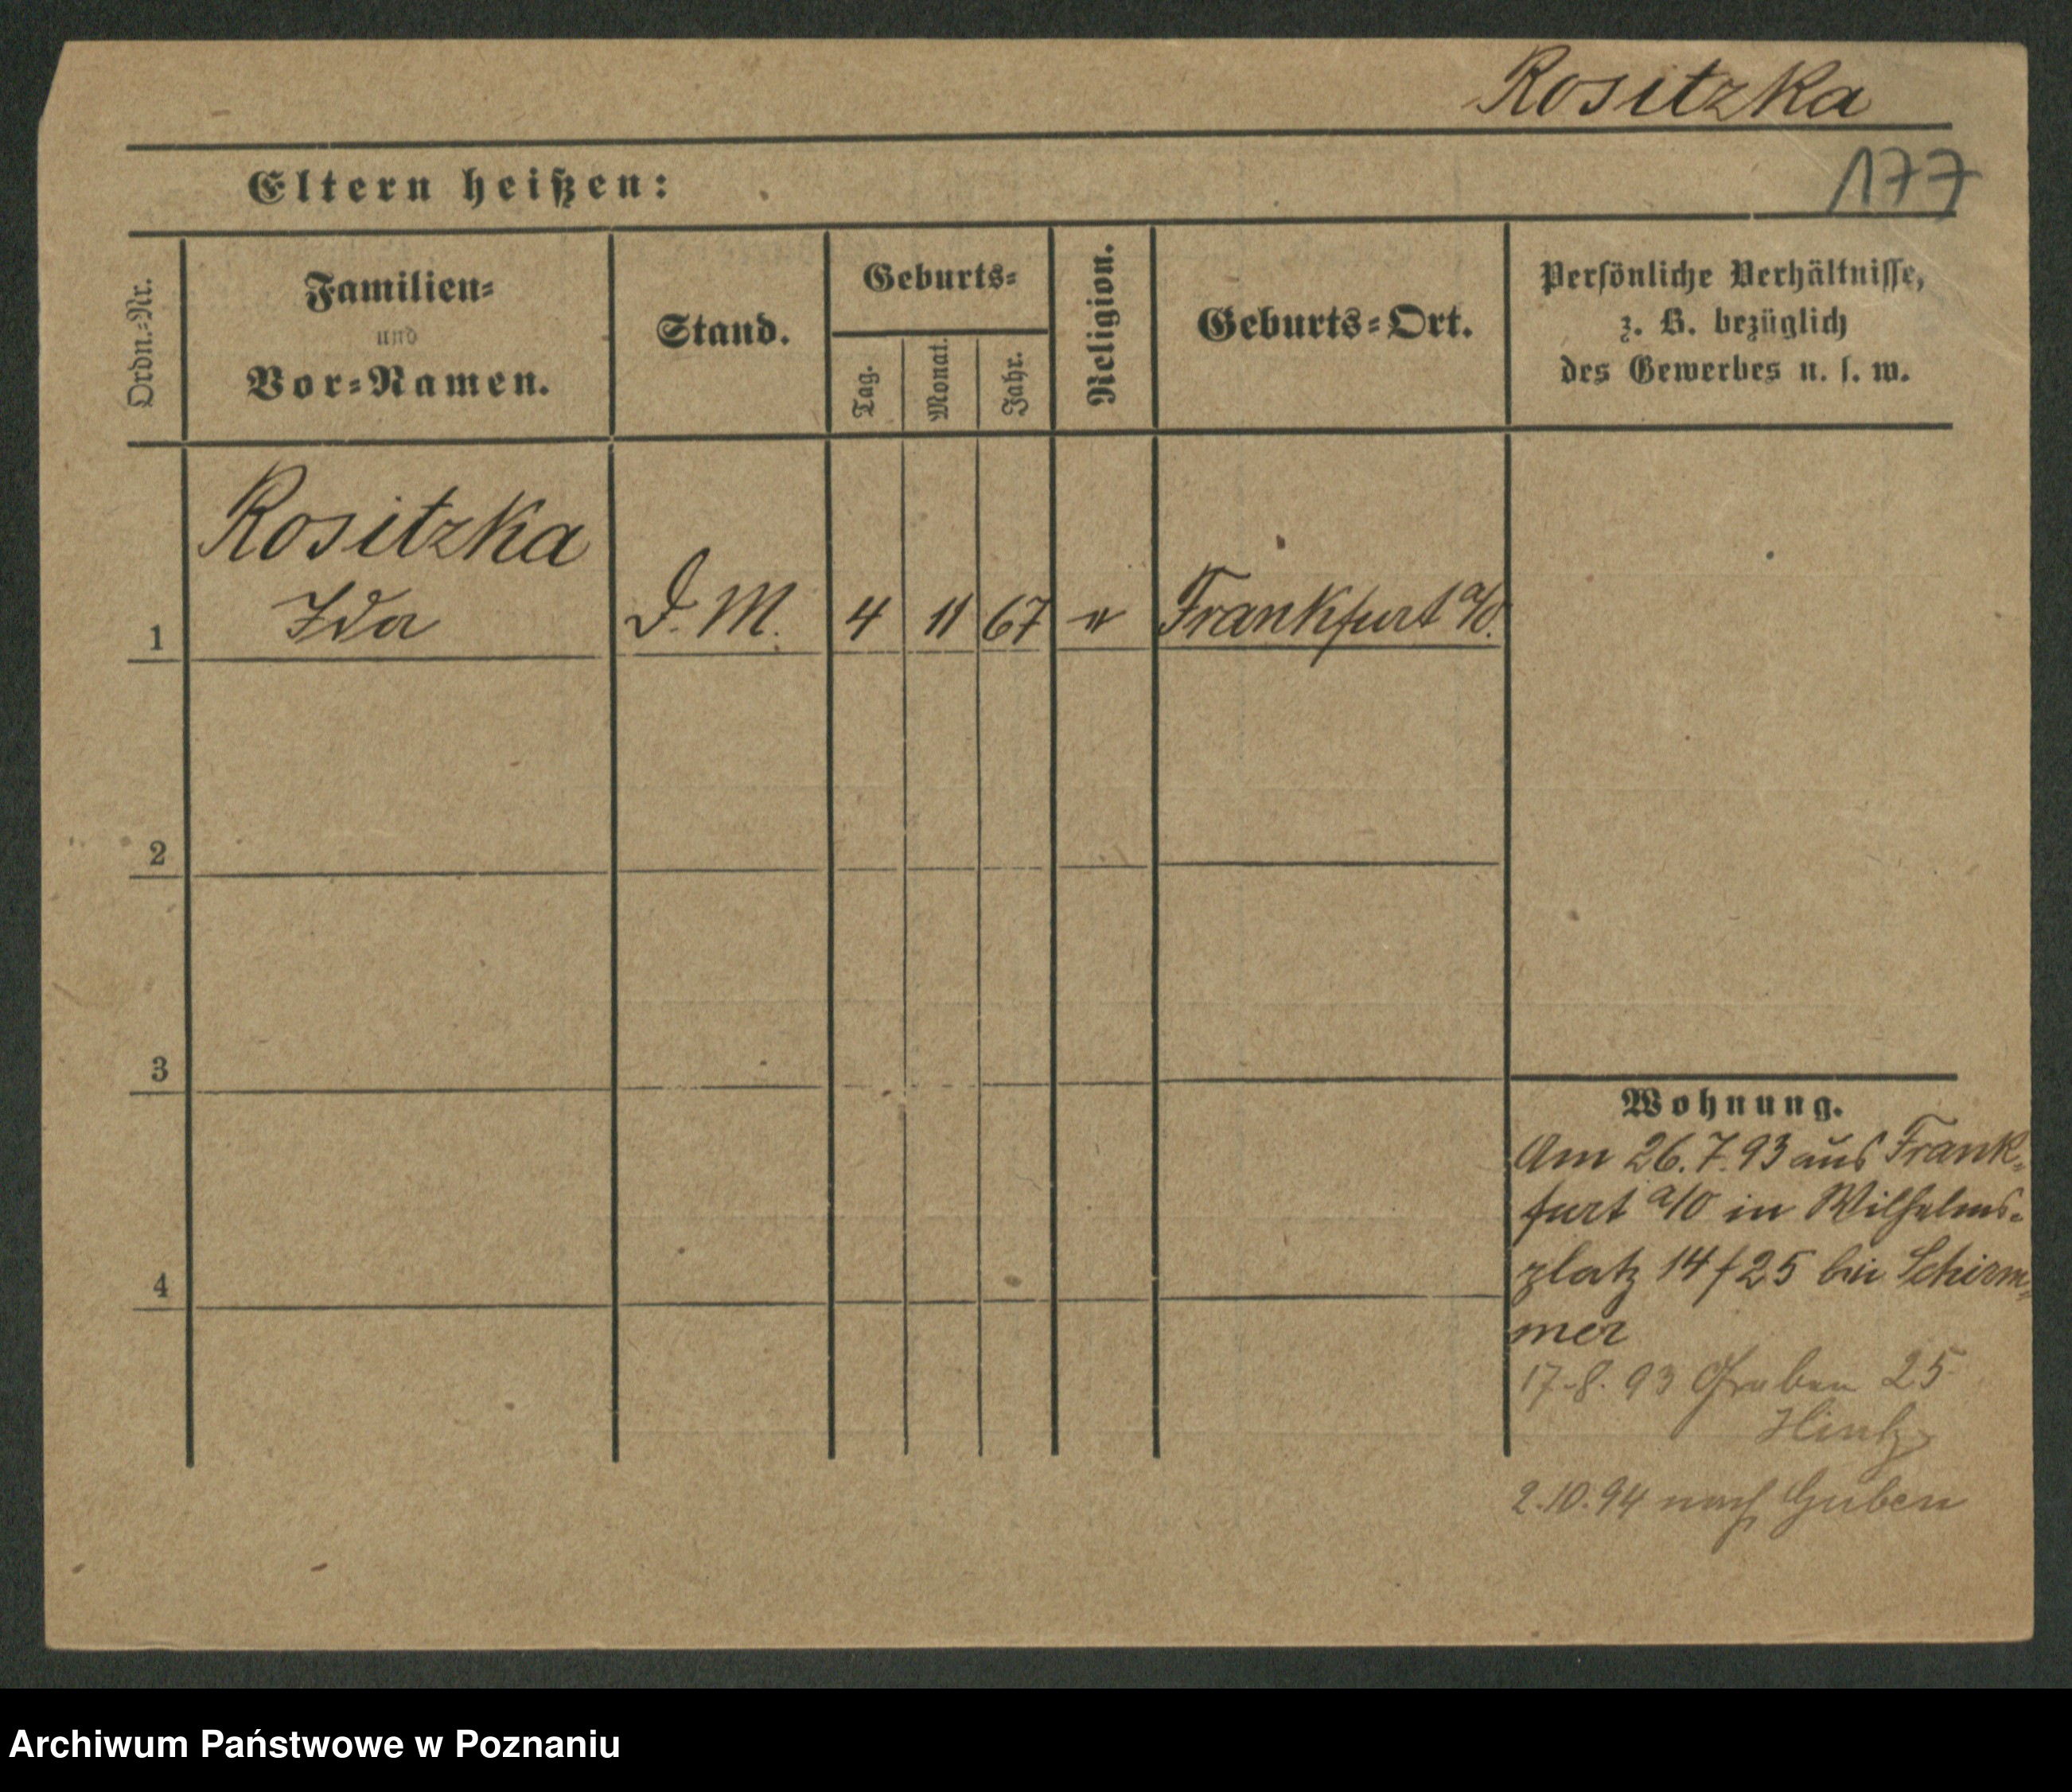 Rositzka
177
Eltern heißen:
Ordn.-Nr.
Familien-
und
Vor-Namen.
Stand.
Geburts-
Tag.
Monat.
Jahr.
Religion.
Geburts-Ort.
Persönliche Verhältnisse,
z. B. bezüglich
des Gewerbes u. s. w.
Rositzka
1 Ida D. M. 4 11 67 Frankfurt a/O.
2
3
4
Wohnung.
Am 26.7.93 aus Frank-
furt a/O in Wilhelms-
platz 14 f 25 bei Schirm-
mer
17.8.93 Graben 25
Hintz
2.10.94 nach Guben
Archiwum Państwowe w Poznaniu